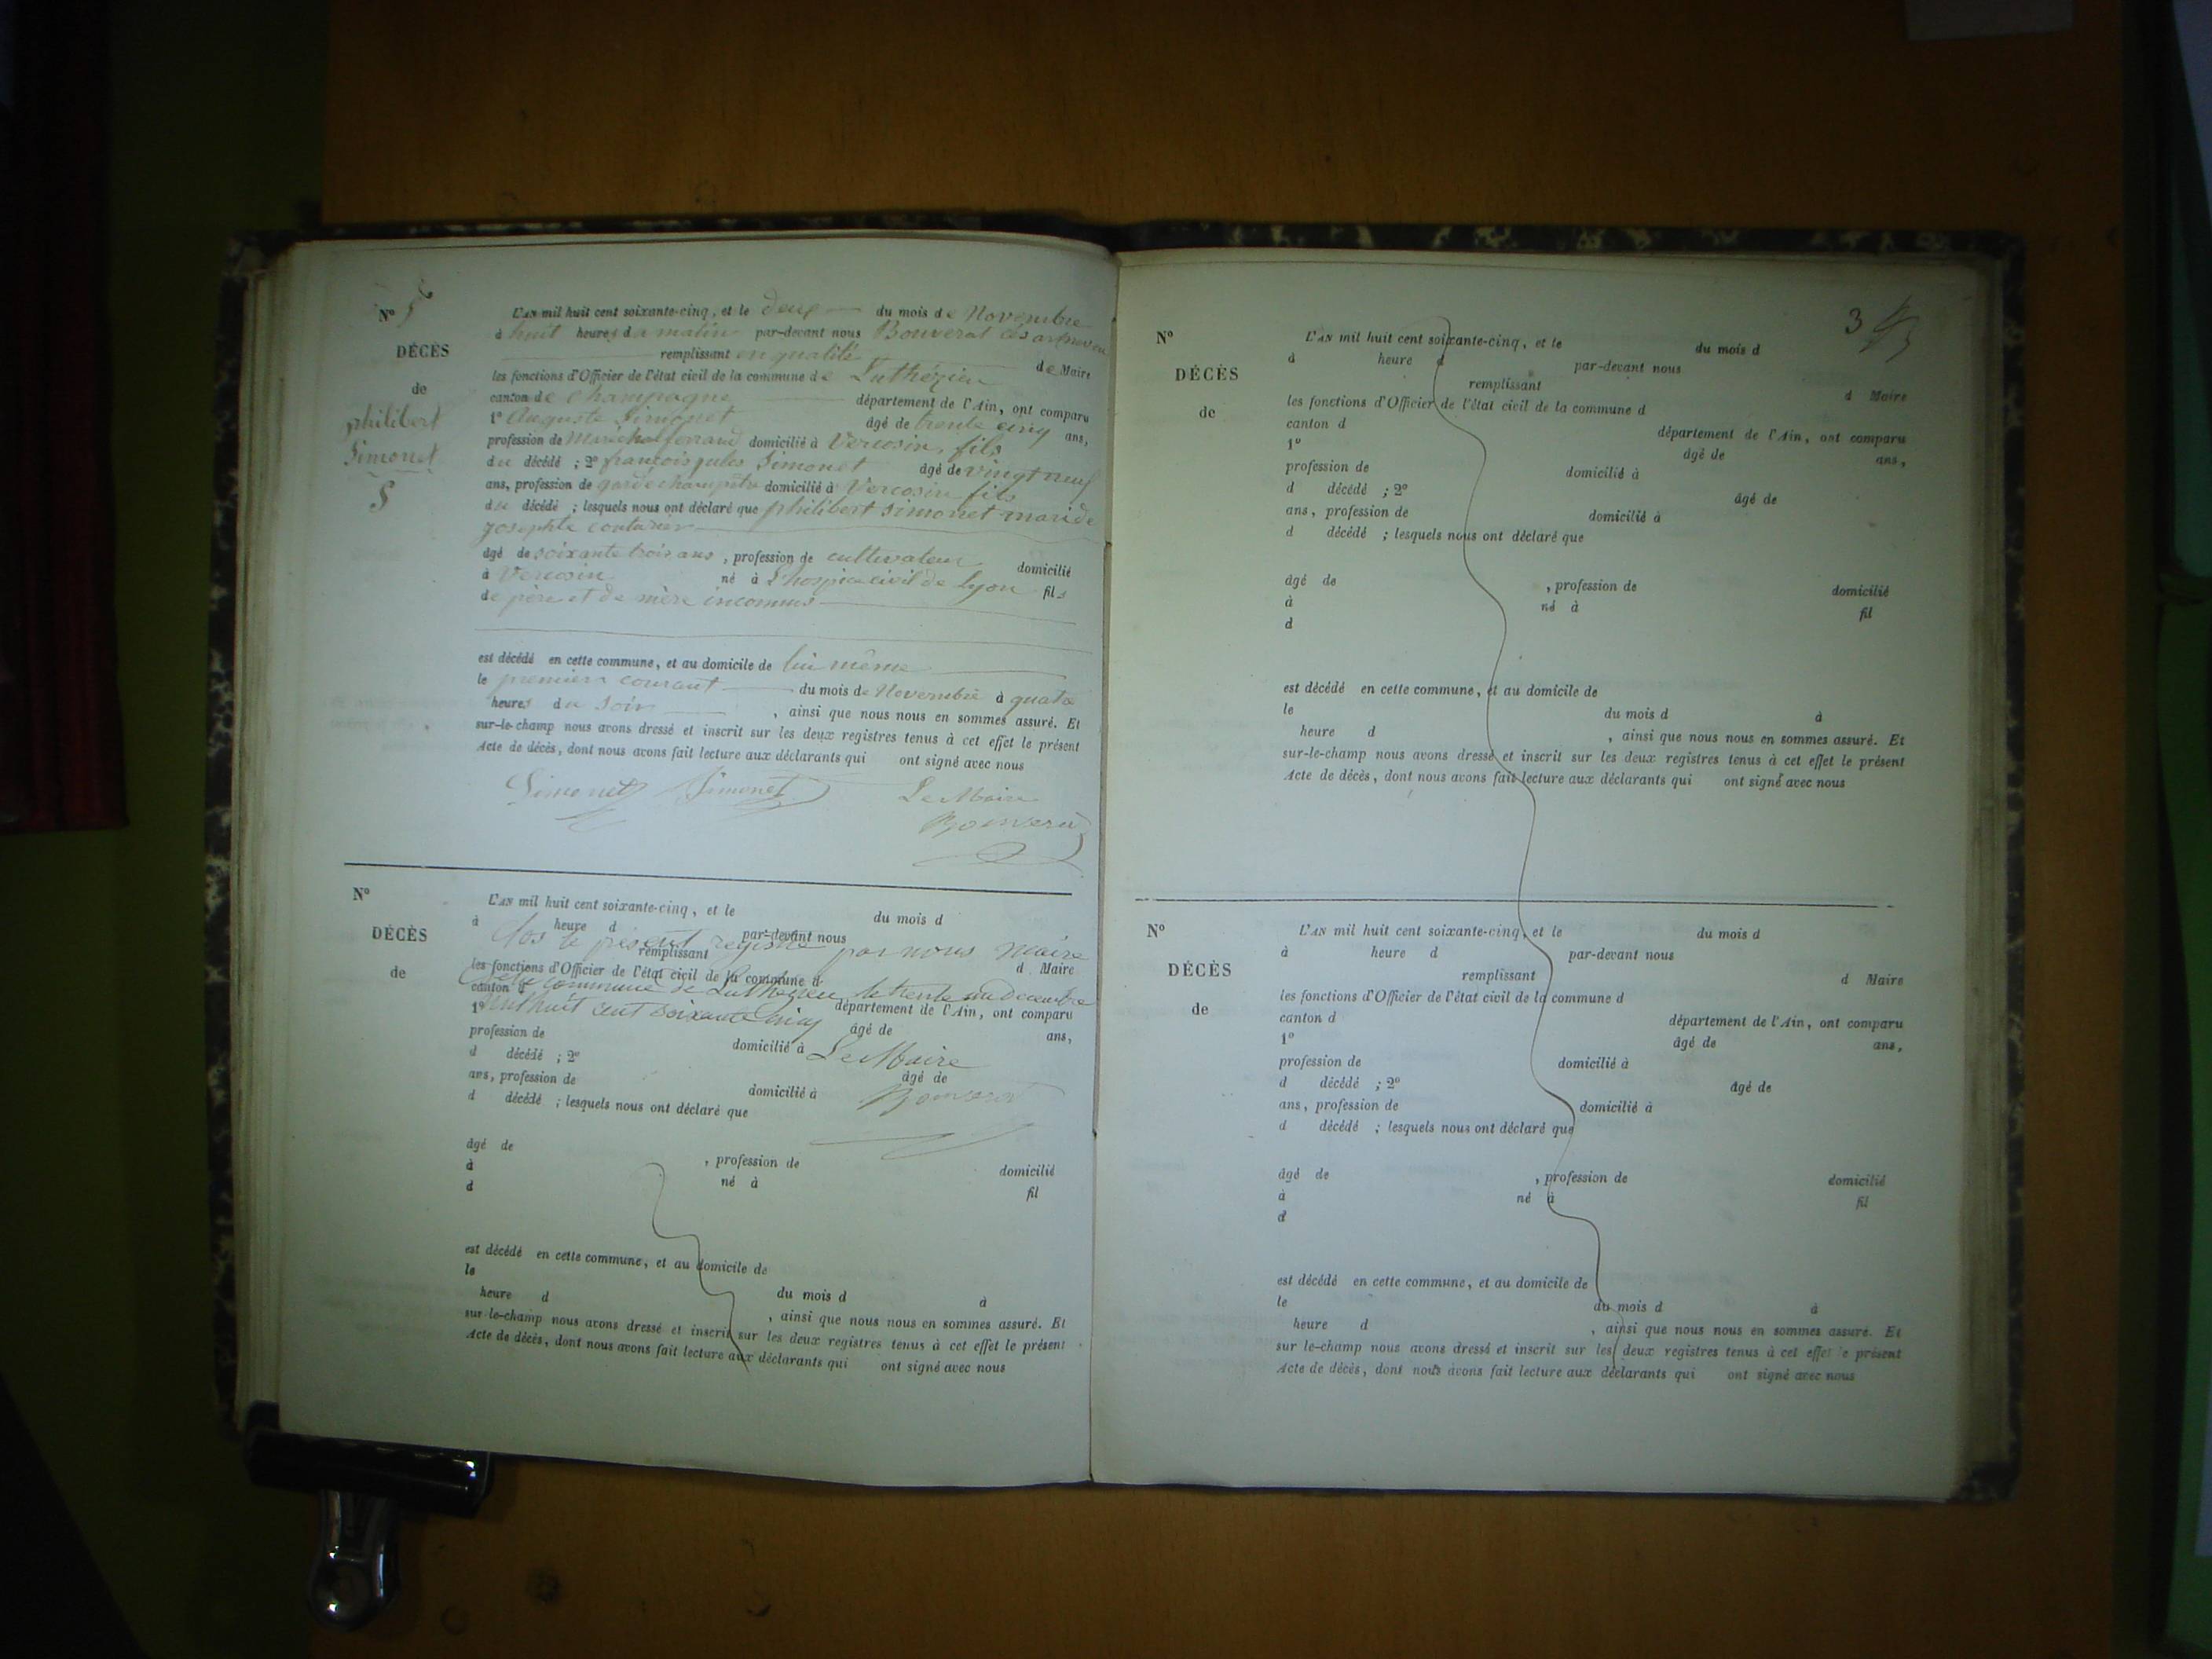 N° 5
DÉCÈS
de
philibert
Simonet
5
L'AN mil huit cent soixante-cinq, et le deux du mois de Novembre
à huit heures du matin par-devant nous Bouverat
remplissant en qualité de Maire
les fonctions d'Officier de l'état civil de la commune de Luthézieu
canton de Champagne département de l'Ain, ont comparu
1° Auguste Simonet âgé de trente cinq ans,
profession de Maréchal ferrand domicilié à Vercosin, fils
du décédé ; 2° françois jules Simonet âgé de vingt neuf
ans, profession de garde champêtre domicilié à Vercosin fils
du décédé ; lesquels nous ont déclaré que philibert Simonet mari de
Josephte
âgé de soixante trois ans, profession de cultivateur domicilié
à Vercosin né à l'hospice civil de lyon fils
de père et de mère inconnus
est décédé en cette commune, et au domicile de lui même
le premier courant du mois de Novembre à quatre
heures du soir, ainsi que nous nous en sommes assuré. Et
sur-le-champ nous avons dressé et inscrit sur les deux registres tenus à cet effet le présent
Acte de décès, dont nous avons fait lecture aux déclarants qui ont signé avec nous
Simonet Simonet Le Maire
Bouverat
N°
DÉCÈS
de
L'AN mil huit cent soixante-cinq, et le du mois d
à heure d par-devant nous
Clos le présent registre par nous Maire
remplissant d Maire
les fonctions d'Officier de l'état civil de la commune d
de la commune de Luthézieu le trente un decembre
canton d département de l'Ain, ont comparu
mil huit cent soixante cinq
1° âgé de ans,
profession de domicilié à
Le Maire
d décédé ; 2° âgé de
Bouverat
ans, profession de domicilié à
d décédé ; lesquels nous ont déclaré que
âgé de , profession de domicilié
à né à fil
d
est décédé en cette commune, et au domicile de
le du mois d à
heure d , ainsi que nous nous en sommes assuré. Et
sur-le-champ nous avons dressé et inscrit sur les deux registres tenus à cet effet le présent
Acte de décès, dont nous avons fait lecture aux déclarants qui ont signé avec nous
3
N°
DÉCÈS
de
L'AN mil huit cent soixante-cinq, et le du mois d
à heure d par-devant nous
remplissant d Maire
les fonctions d'Officier de l'état civil de la commune d
canton d département de l'Ain, ont comparu
1° âgé de ans,
profession de domicilié à
d décédé ; 2° âgé de
ans, profession de domicilié à
d décédé ; lesquels nous ont déclaré que
âgé de , profession de domicilié
à né à fil
d
est décédé en cette commune, et au domicile de
le du mois d à
heure d , ainsi que nous nous en sommes assuré. Et
sur-le-champ nous avons dressé et inscrit sur les deux registres tenus à cet effet le présent
Acte de décès, dont nous avons fait lecture aux déclarants qui ont signé avec nous
N°
DÉCÈS
de
L'AN mil huit cent soixante-cinq, et le du mois d
à heure d par-devant nous
remplissant d Maire
les fonctions d'Officier de l'état civil de la commune d
canton d département de l'Ain, ont comparu
1° âgé de ans,
profession de domicilié à
d décédé ; 2° âgé de
ans, profession de domicilié à
d décédé ; lesquels nous ont déclaré que
âgé de , profession de domicilié
à né à fil
d
est décédé en cette commune, et au domicile de
le du mois d à
heure d , ainsi que nous nous en sommes assuré. Et
sur-le-champ nous avons dressé et inscrit sur les deux registres tenus à cet effet le présent
Acte de décès, dont nous avons fait lecture aux déclarants qui ont signé avec nous